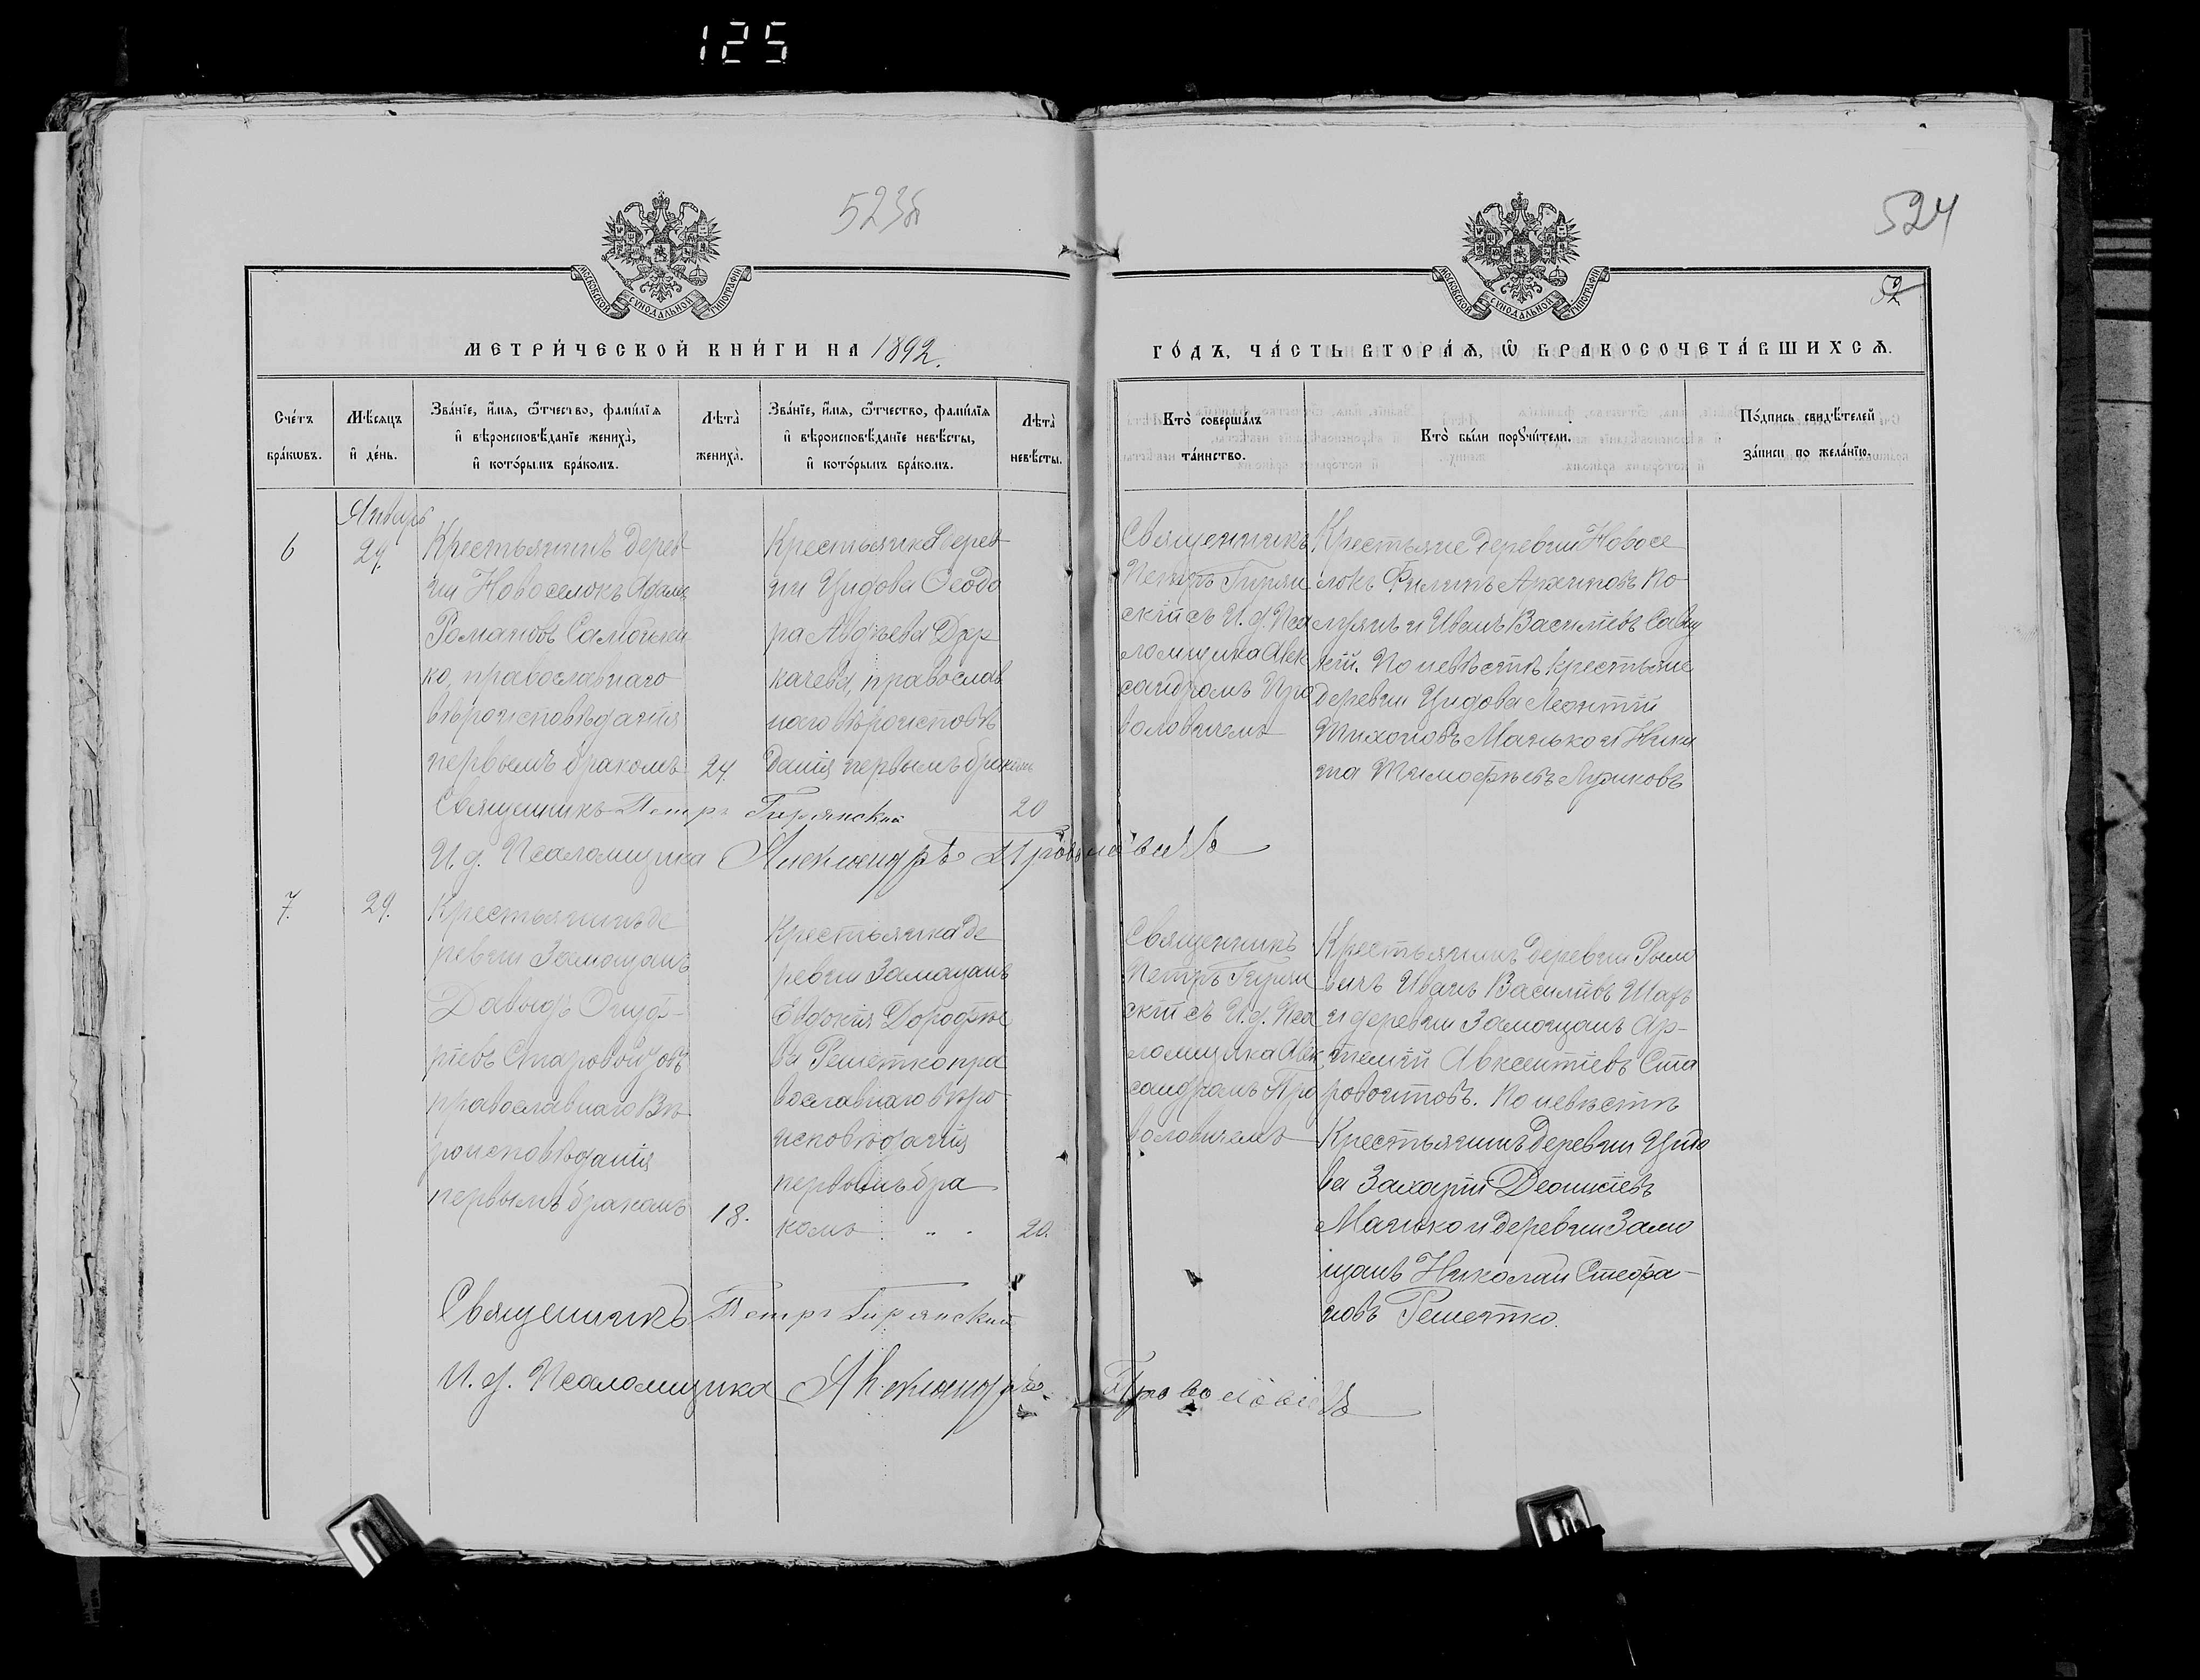 125
523б
524
52
МОСКОВСКОЙ СѴНОДАЛЬНОЙ ТИПОГРАФІИ
МОСКОВСКОЙ СѴНОДАЛЬНОЙ ТИПОГРАФІИ
МЕТРИ́ЧЕСКОЙ КНИ́ГИ НА 1892.
ГО́ДЪ, ЧА́СТЬ ВТОРА́Ѧ, Ѽ БРАКОСОЧЕТА́ВШИХСѦ.
Сче́тъ
бра́кѡвъ.
Мѣ́сѧцъ
и҆ де́нь.
Зва́нїе, и҆́мѧ, ѻ҆́тчество, фами́лїѧ
и҆ вѣроисповѣ́данїе жениха̀,
и҆ кото́рымъ бра́комъ.
Лѣта̀
жениха̀.
Зва́нїе, и҆́мѧ, ѻ҆́тчество, фами́лїѧ
и҆ вѣроисповѣ́данїе невѣ́сты,
и҆ кото́рымъ бра́комъ.
Лѣта̀
невѣ́сты.
Кто̀ соверша́лъ
та́инство.
Кто̀ бы́ли порꙋчи́тели.
По́дпись свидѣ́телей
за́писи по жела́нїю.
Январь
6
29.
Крестьянинъ дерев-
ни Новоселокъ Адамъ
Романовъ
ко, православнаго
вѣроисповѣданія
первымъ бракомъ
24.
Крестьянка дерев-
ни Цидова Ѳеодо
ра Авдѣева
качева, православ
наго вѣроисповѣ
данія первымъ бракомъ
20
Священникъ
Петръ Гирян
скій съ И. д. Пса
ломщика Алек
сандромъ Про
воловичемъ
Крестьяне деревни Новосе
локъ Филипъ Архиповъ По
и Иванъ Васильевъ Савиц
кій. По невѣстѣ крестьяне
деревни Цидова Леонтій
Тихоновъ Манько и Ники
та Тимофѣевъ
Священникъ Петръ Гирянскій
И. д. Псаломщика Александръ Проволовичъ
7.
29.
Крестьянинъ де
ревни Замощанъ
Давыдъ
ріевъ Старовойтовъ
православнаго вѣ
роисповѣданія
первымъ бракомъ
18.
Крестьянка де
ревни Замощанъ
Евдокія Дорофѣе
ва Решетко пра
вославнаго вѣро
исповѣданія
первымъ бра
комъ
20.
Священникъ
Петръ Гирян
скій съ И. д. Пса
ломщика Алек
сандромъ Про
воловичемъ
Крестьянинъ деревни
Иванъ Васильевъ
и деревни Замощанъ Ар-
темій Авксентіевъ Ста
ровойтовъ. По невѣстѣ
Крестьянинъ деревни Цидо
ва Захарій
Манько и деревни Замо
щанъ Николай Стефа-
новъ Решетко.
Священникъ Петръ Гирянскій
И. д. Псаломщика Александръ Проволовичъ